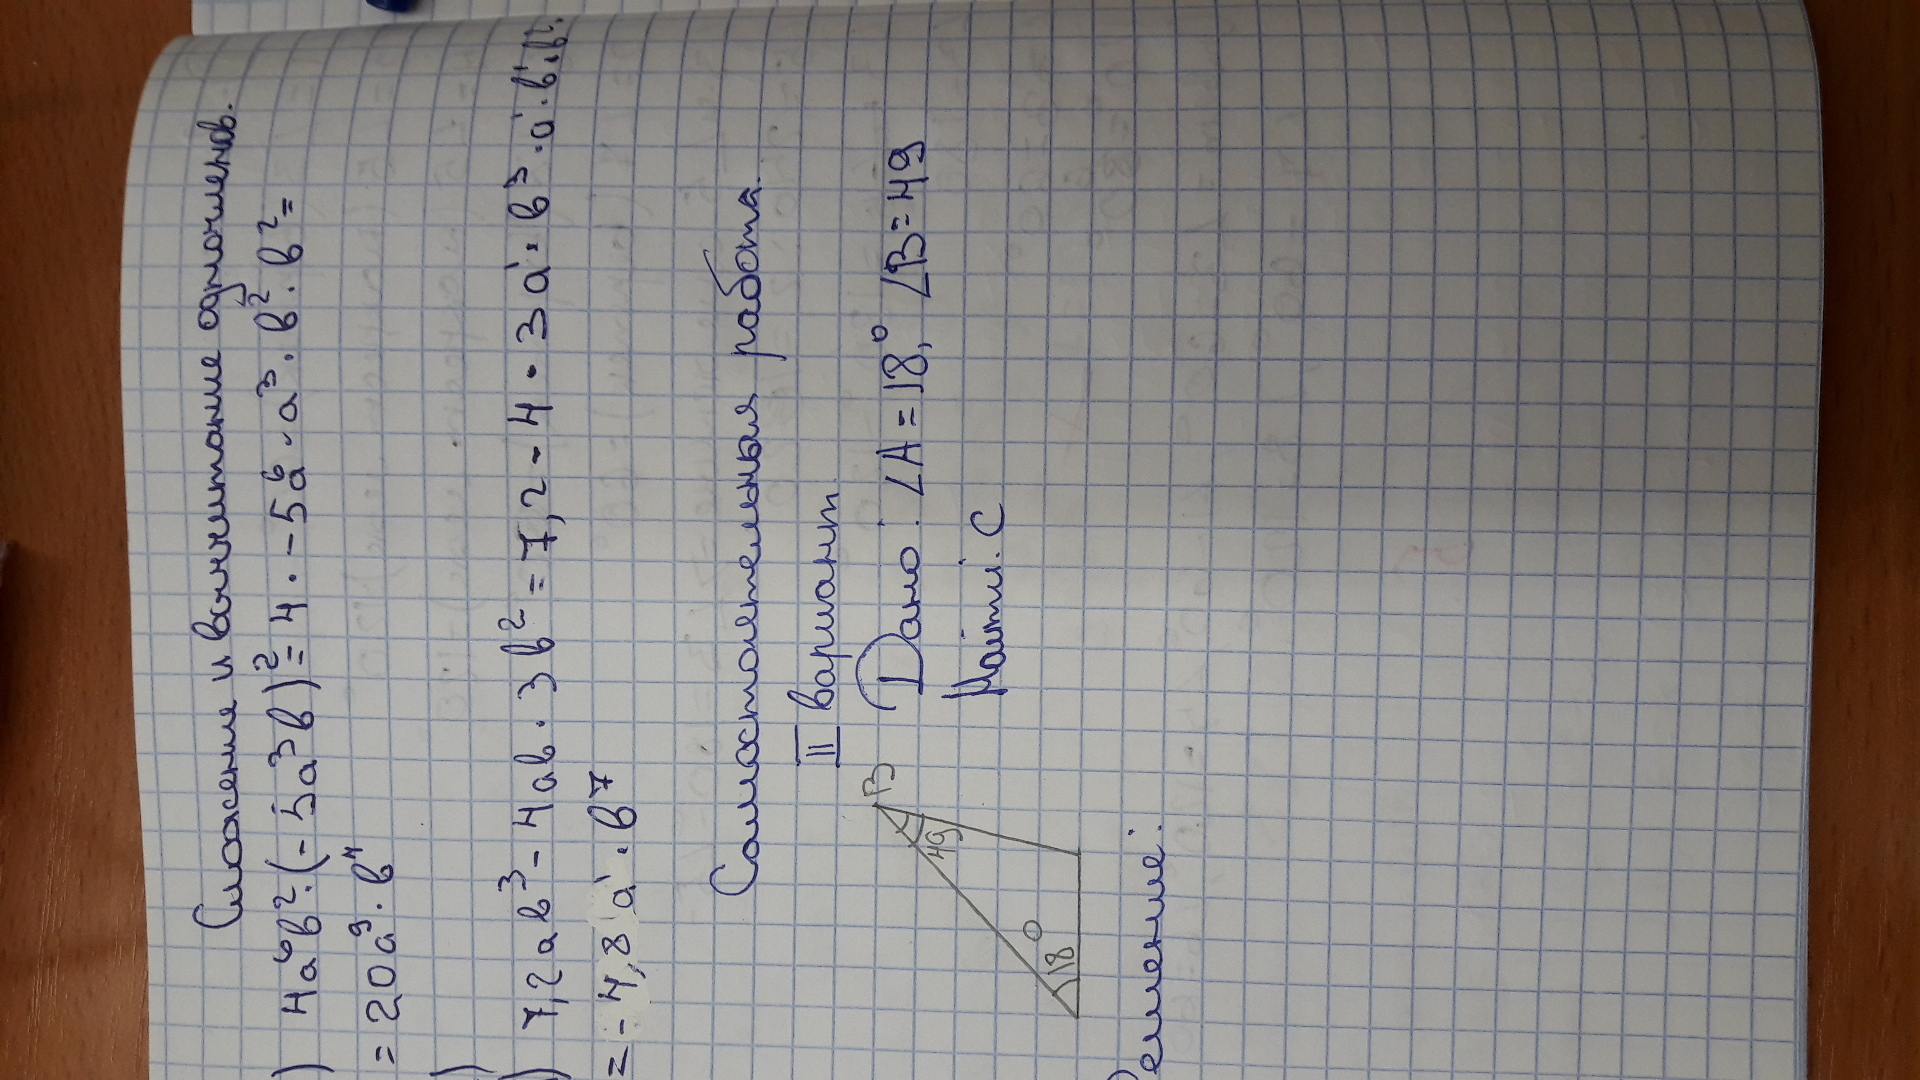 Сложение и вычитание одночленов.
) 4a⁶b²·(-5a³b)²=4·-5a⁶·a³·b²·b²=
=20a⁹·b⁴
)
) 7,2ab³-4ab·3b²=7,2-4·3a¹·b³·a¹·b¹·b².
=-4,8a¹·b⁷
Самостоятельная работа.
II вариант.
Дано: ∠A=18°, ∠B=49
Найти: C
B
49
18°
Решение: